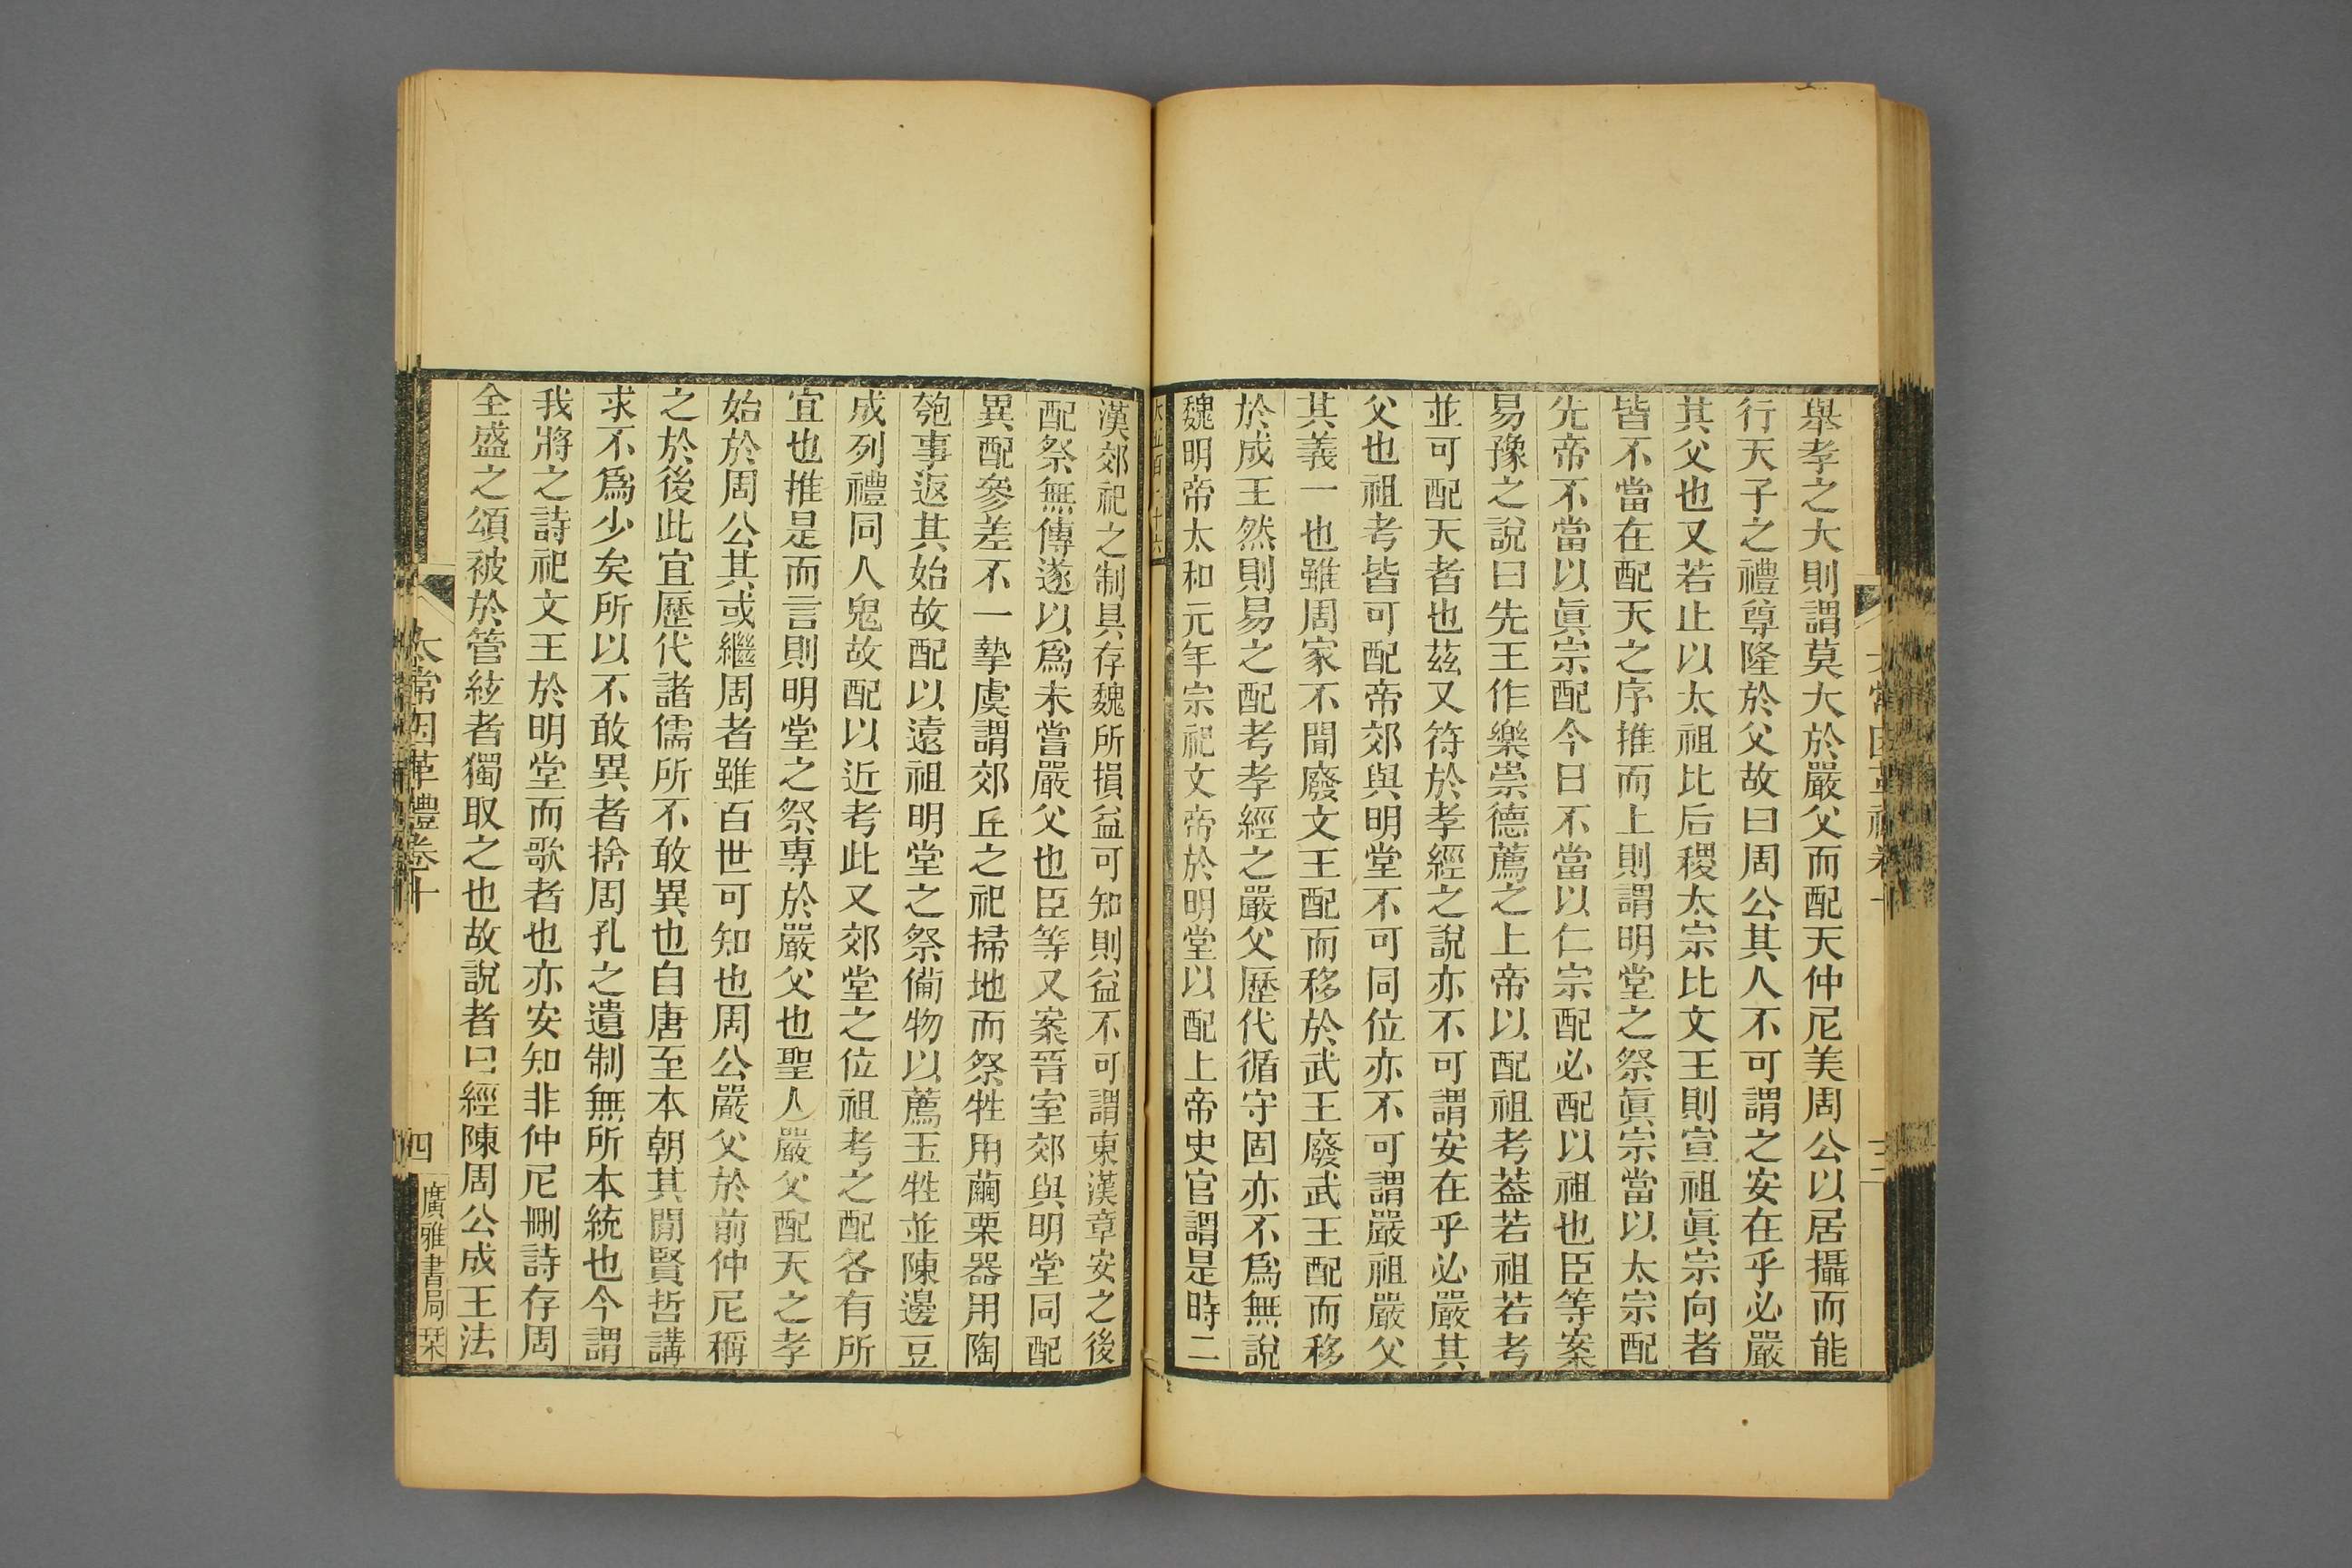 舉孝之大則謂莫大於嚴父而配天仲尼美周公以居攝而能
行天子之禮尊隆於父故曰周公其人不可謂之安在乎必嚴
其父也又若止以太祖比后稷太宗比文王則宣祖眞宗向者
皆不當在配天之序推而上則謂明堂之祭眞宗當以太宗配
先帝不當以眞宗配今日不當以仁宗配必配以祖也臣等案
易豫之說曰先王作樂崇德薦之上帝以配祖考葢若祖若考
並可配天者也茲又符於孝經之說亦不可謂安在乎必嚴其
父也祖考皆可配帝郊與明堂不可同位亦不可謂嚴祖嚴父
其義一也雖周家不聞廢文王配而移於武王廢武王配而移
於成王然則易之配考孝經之嚴父歷代循守固亦不爲無說
魏明帝太和元年宗祀文帝於明堂以配上帝史官謂是時二
漢郊祀之制具存魏所損益可知則益不可謂東漢章安之後
配祭無傳遂以爲未嘗嚴父也臣等又案晉室郊與明堂同配
異配參差不一摯虞謂郊丘之祀掃地而祭牲用繭栗器用陶
匏事返其始故配以遠祖明堂之祭備物以薦玉牲並陳邊豆
成列禮同人鬼故配以近考此又郊堂之位祖考之配各有所
宜也推是而言則明堂之祭專於嚴父也聖人嚴父配天之孝
始於周公其或繼周者雖百世可知也周公嚴父於前仲尼稱
之於後此宜歷代諸儒所不敢異也自唐至本朝其閒賢哲講
求不爲少矣所以不敢異者捨周孔之遺制無所本統也今謂
我將之詩祀文王於明堂而歌者也亦安知非仲尼刪詩存周
全盛之頌被於管絃者獨取之也故說者曰經陳周公成王法
太常因革禮卷十
四
廣雅書局栞